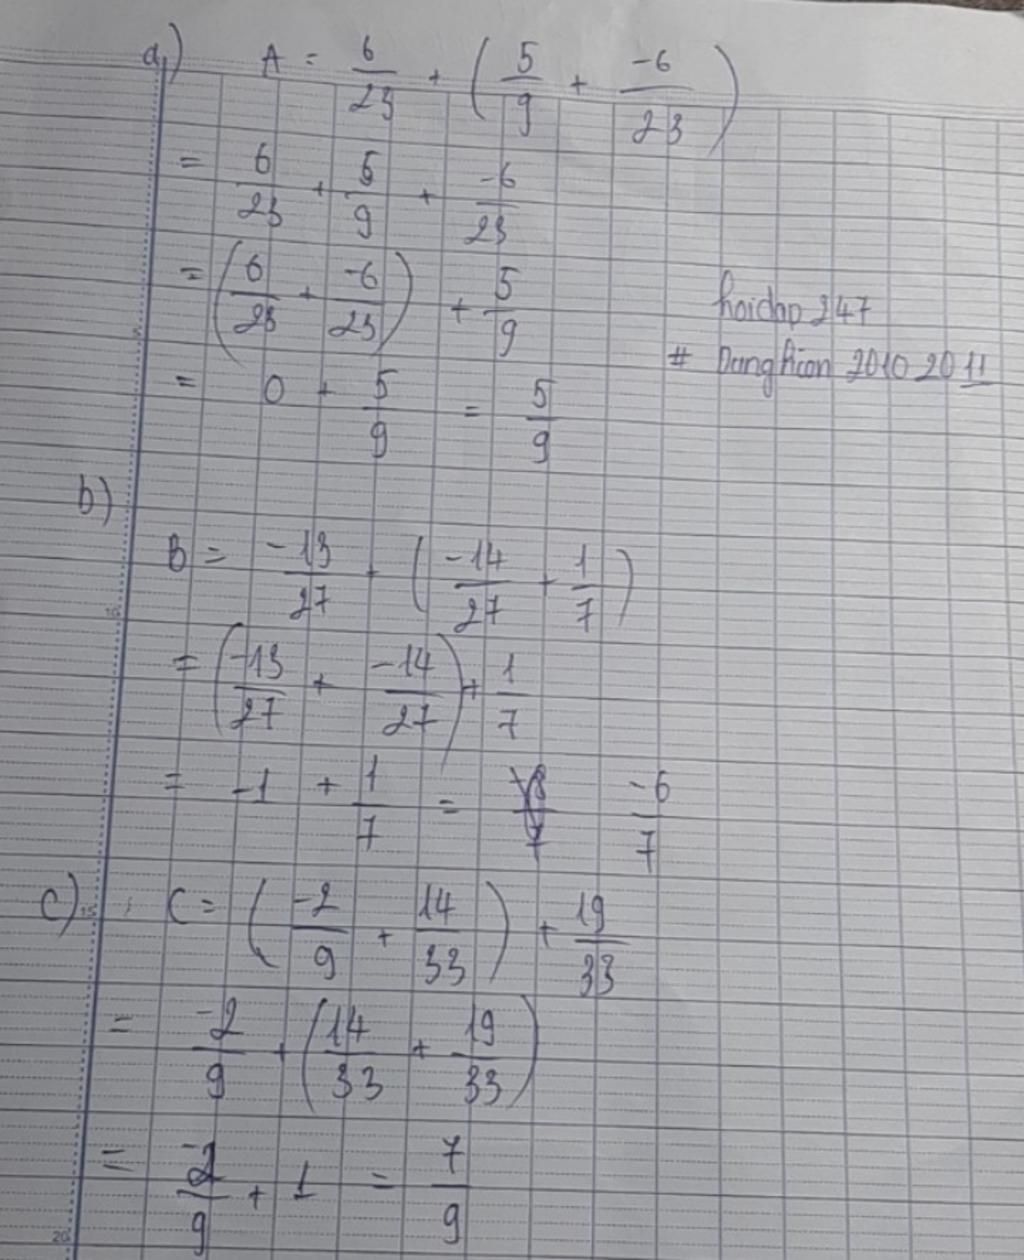 a) A = 6/23 + (5/9 + -6/23)
= 6/23 + 5/9 + -6/23
= (6/23 + -6/23) + 5/9
hoidap 247
# Dunghian 2010 2011
= 0 + 5/9 = 5/9
b)
B = -13/27 + (-14/27 + 1/7)
= (-13/27 + -14/27) + 1/7
= -1 + 1/7 = -6/7
c) C = (-2/9 + 14/33) + 19/33
= -2/9 + (14/33 + 19/33)
= -2/9 + 1 = 7/9